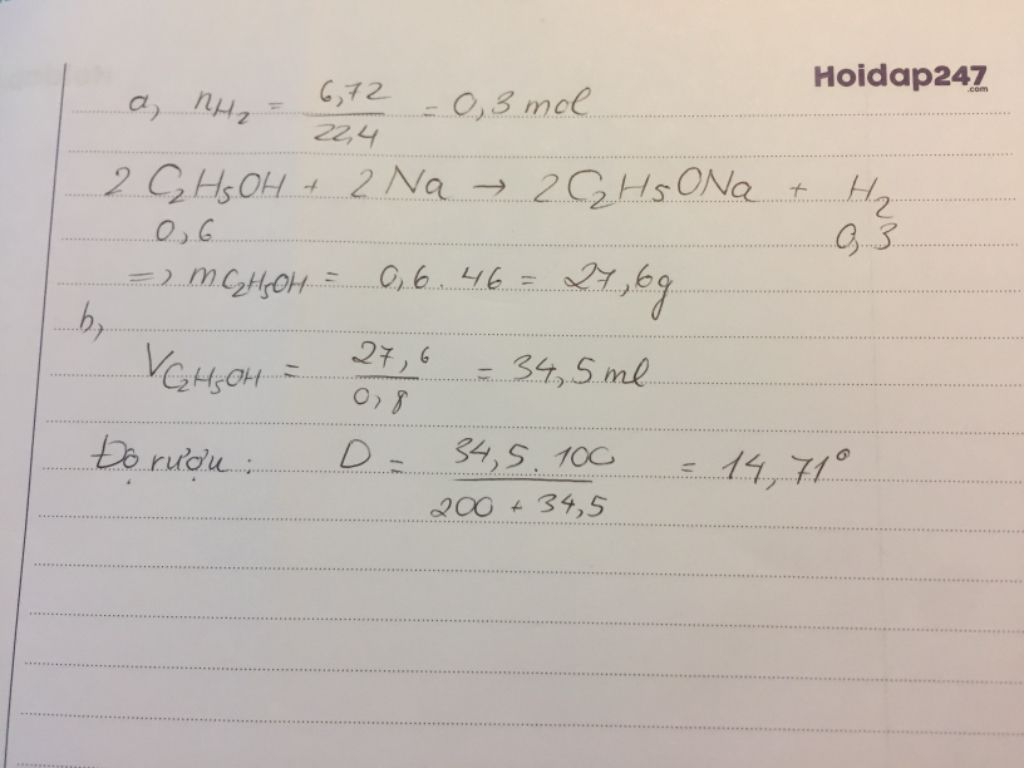 Hoidap247
.com
a, nH₂ = 6,72 / 22,4 = 0,3 mol
2 C₂H₅OH + 2 Na → 2 C₂H₅ONa + H₂
0,6 0,3
=> mC₂H₅OH = 0,6 . 46 = 27,6g
b,
VC₂H₅OH = 27,6 / 0,8 = 34,5 ml
Độ rượu : D = 34,5 . 100 / 200 + 34,5 = 14,71°